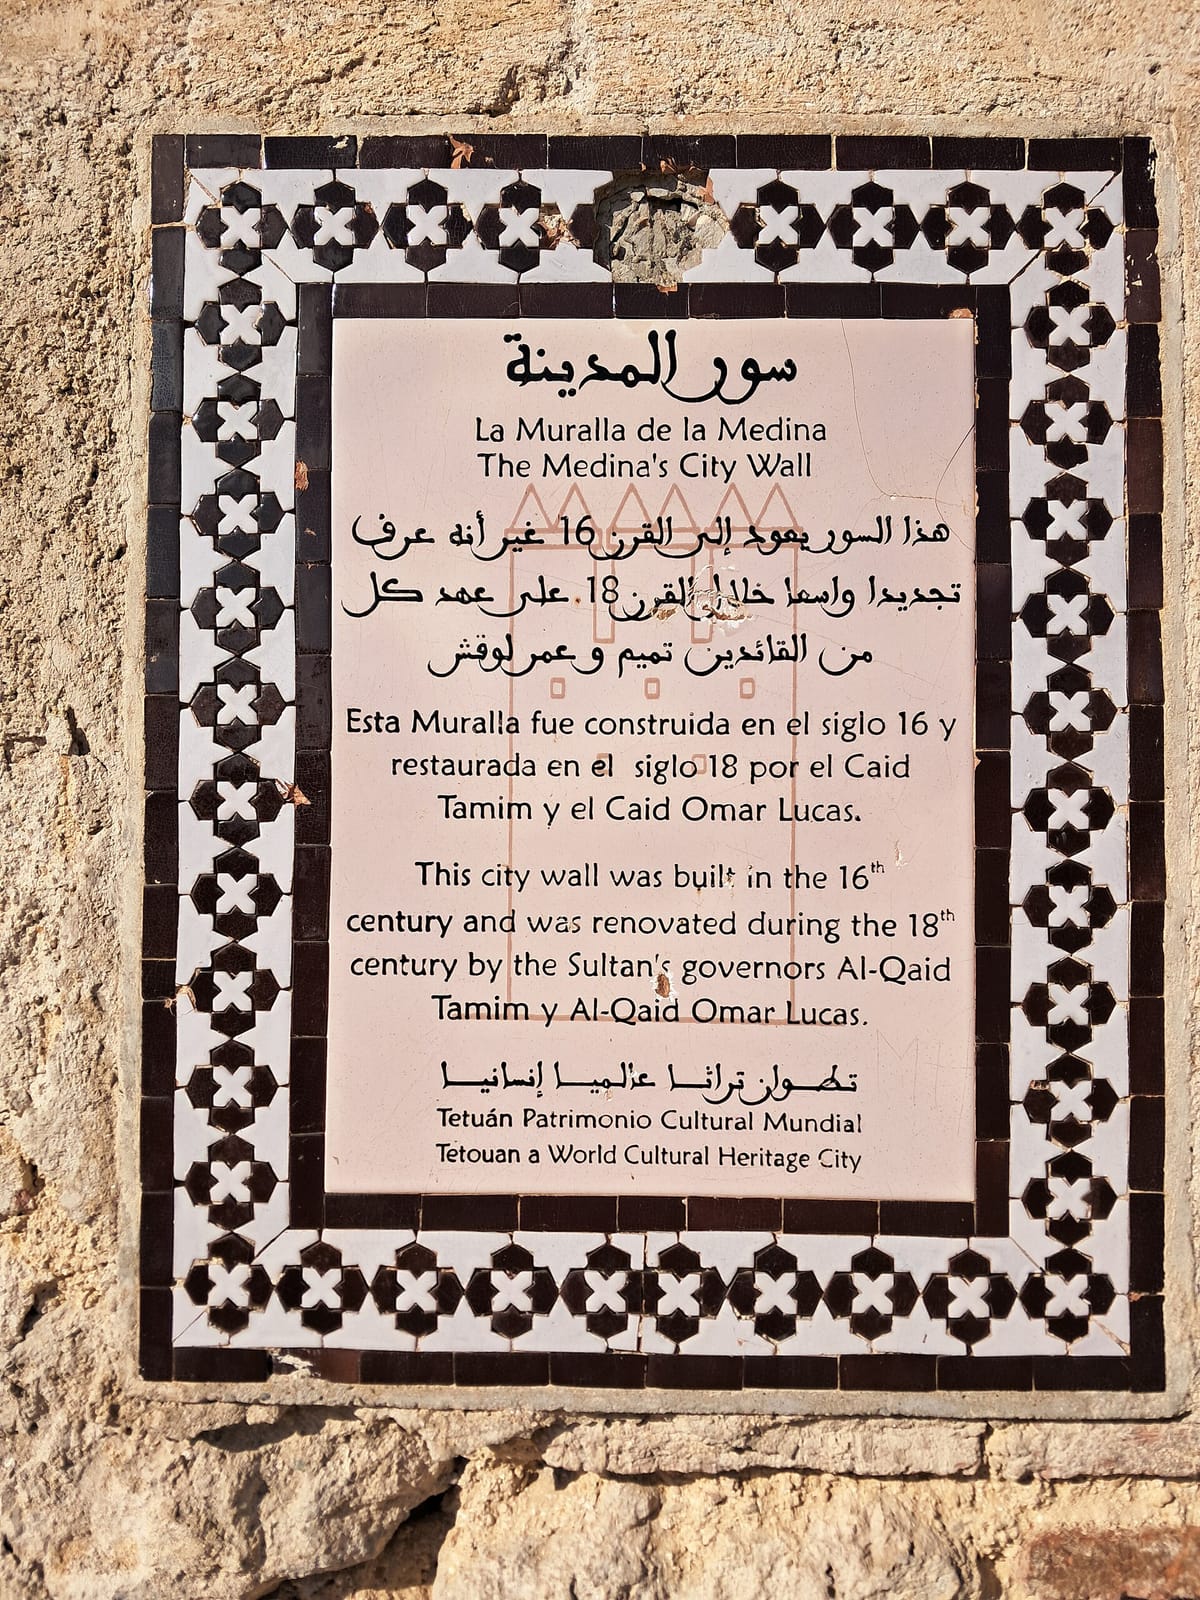 سور المدينة
La Muralla de la Medina
The Medina's City Wall
هذا السور يعود إلى القرن 16 غير أنه عرف
تجديدا واسعا خلال القرن 18 على عهد كل
من القائدين تميم وعمر لوقش
Esta Muralla fue construida en el siglo 16 y
restaurada en el siglo 18 por el Caid
Tamim y el Caid Omar Lucas.
This city wall was built in the 16th
century and was renovated during the 18th
century by the Sultan's governors Al-Qaid
Tamim y Al-Qaid Omar Lucas.
تطوان تراثا عالميا إنسانيا
Tetuán Patrimonio Cultural Mundial
Tetouan a World Cultural Heritage City